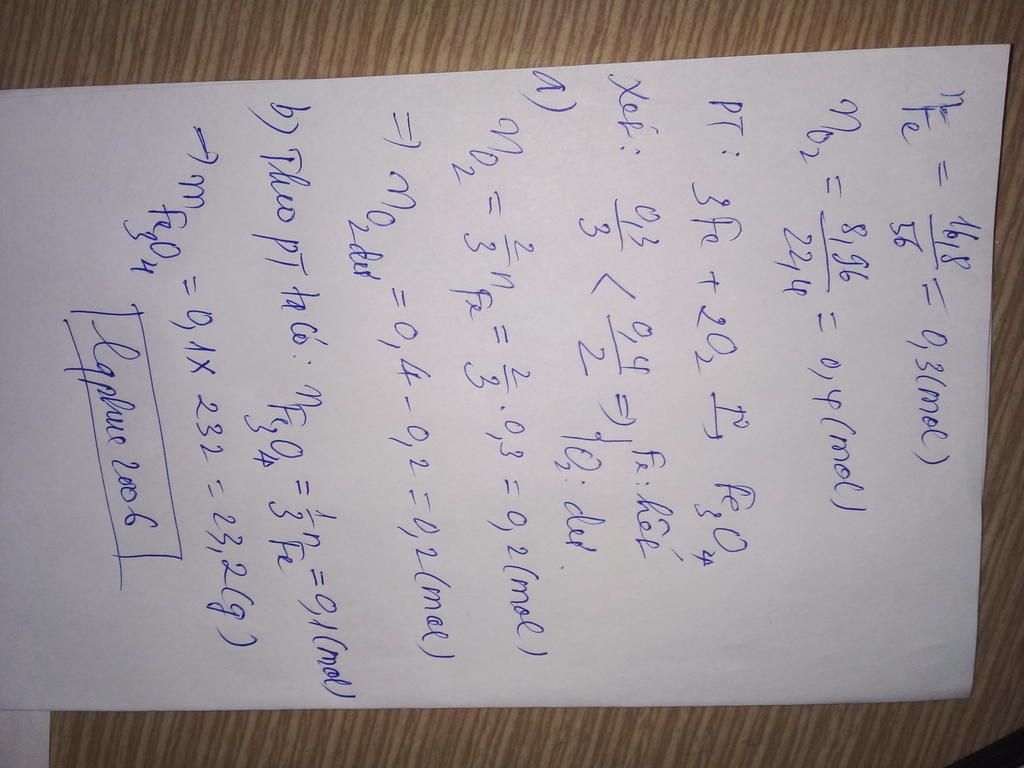 nFe = 16,8/56 = 0,3 (mol)
nO2 = 8,96/22,4 = 0,4 (mol)
PT: 3Fe + 2O2 t°→ Fe3O4
Xét: 0,3/3 < 0,4/2 => Fe: hết
O2: dư
a)
nO2 = 2/3 nFe = 2/3 . 0,3 = 0,2 (mol)
=> nO2 dư = 0,4 - 0,2 = 0,2 (mol)
b) Theo PT ta có: nFe3O4 = 1/3 nFe = 0,1 (mol)
→ mFe3O4 = 0,1 x 232 = 23,2 (g)